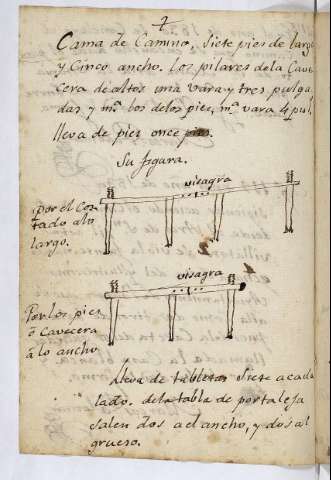 7
Cama de Camino, Siete pies de largo
y Cinco ancho. Los pilares dela Cave
cera de altos una vara y tres pulga
das, y mᵃ los delos pies, mᵃ vara 4 pul.
lleva de pies once pies.
Su figura.
visagra
por el Cos
tado alo
largo.
visagra
Por los pies
o Cavecera
a lo ancho
lleva de tabletas Siete acada
lado. dela tabla de portaleja
salen dos a el ancho, y dos al
grueso.